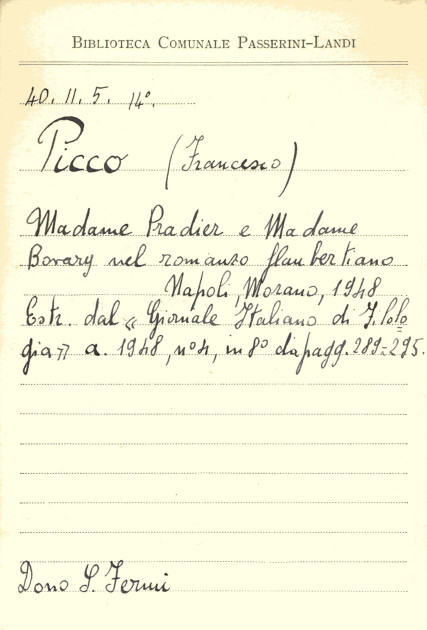 BIBLIOTECA COMUNALE PASSERINI-LANDI
40. II. 5. 14°.
Picco (Francesco)
Madame Pradier e Madame
Bovary nel romanzo flaubertiano
Napoli, Morano, 1948
Estr. dal « Giornale Italiano di Filolo=
gia » a. 1948, n° 4, in 8° da pagg. 289=295.
Dono S. Fermi